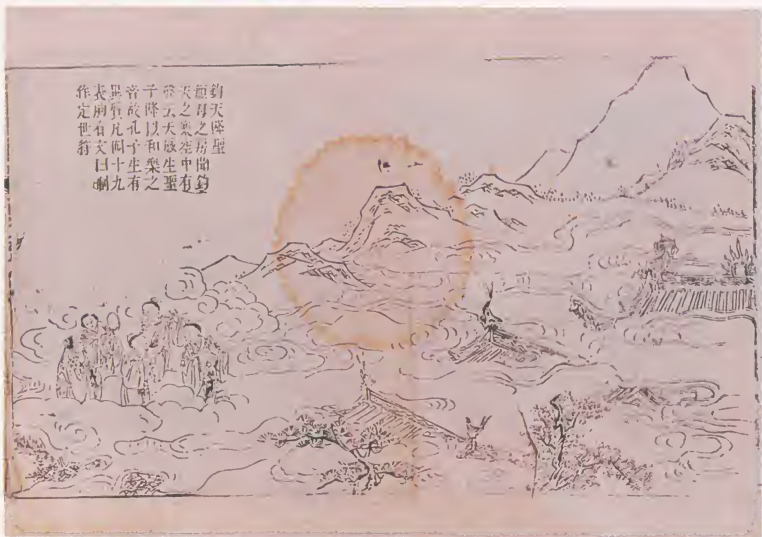 鈞天降聖
顏母之房聞鈞
天之樂空中有
聲云天感生聖
子降以和樂之
音故孔子生有
異質凡四十九
表胸有文曰制
作定世符